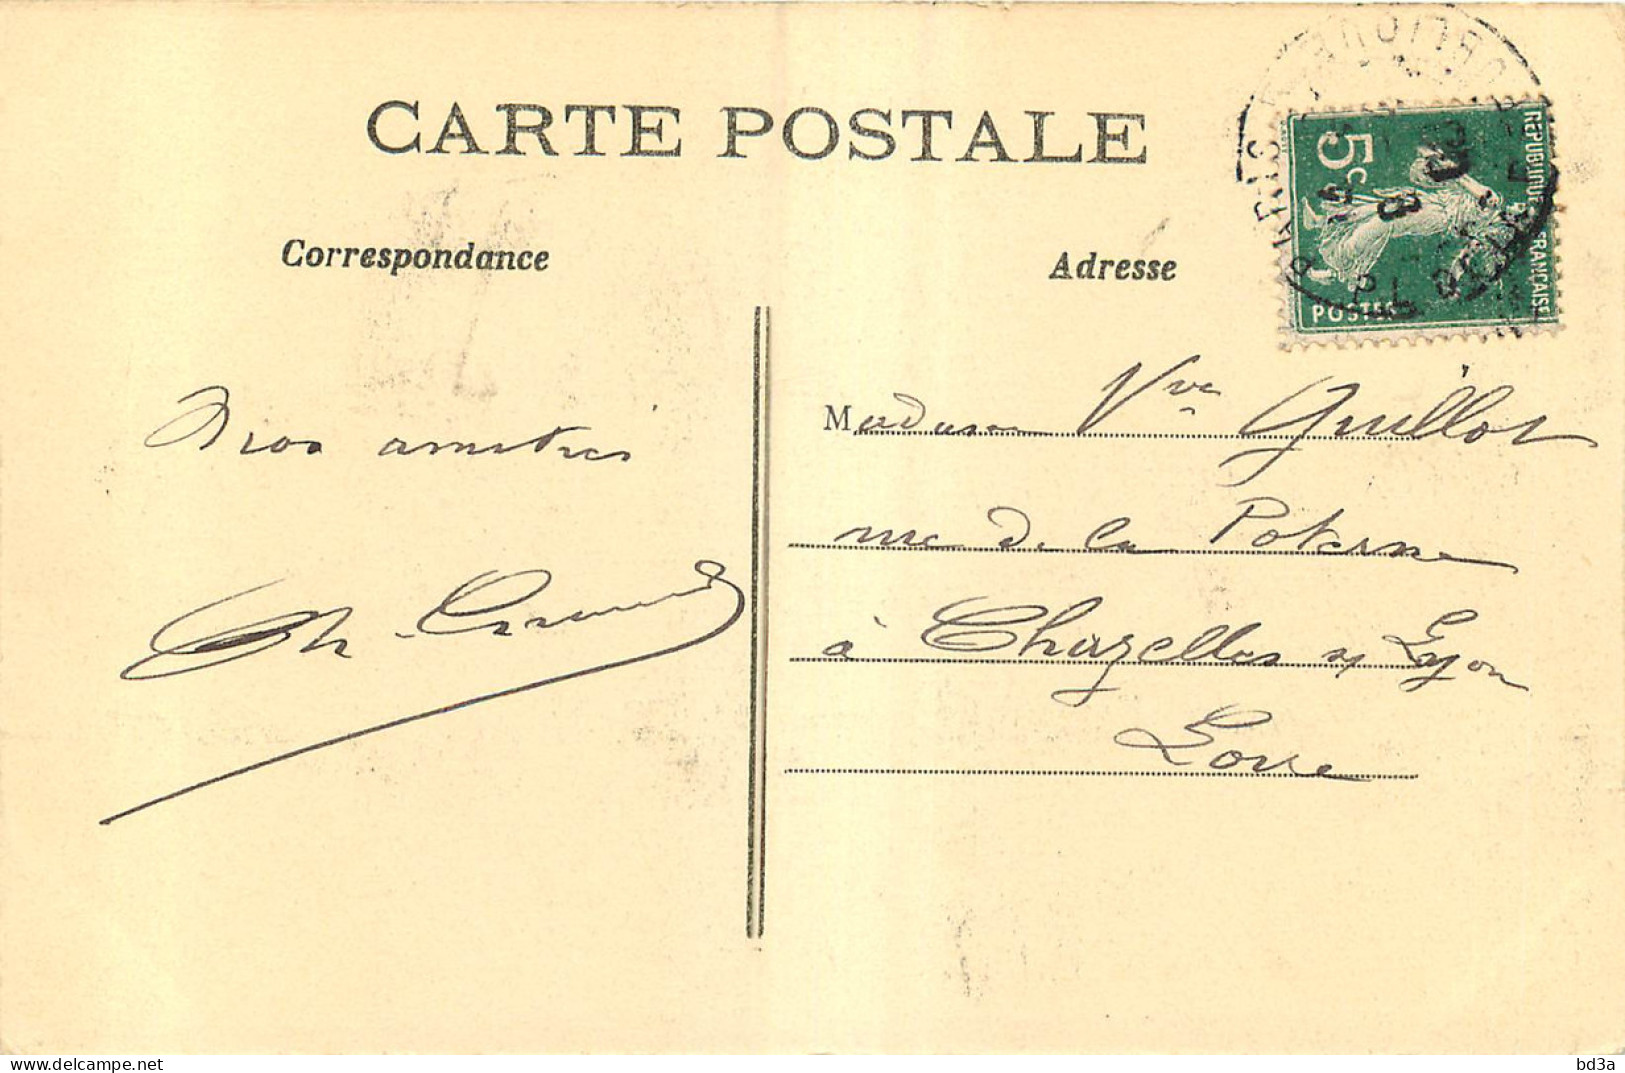 CARTE POSTALE
Correspondance
Adresse
5c
RÉPUBLIQUE FRANÇAISE
POSTES
PARIS
Madame Vve Guillot
rue de la Poterne
à Chazelles s/ Lyon
Loire
amitiés
Ch.
delcampe.net
bd3a